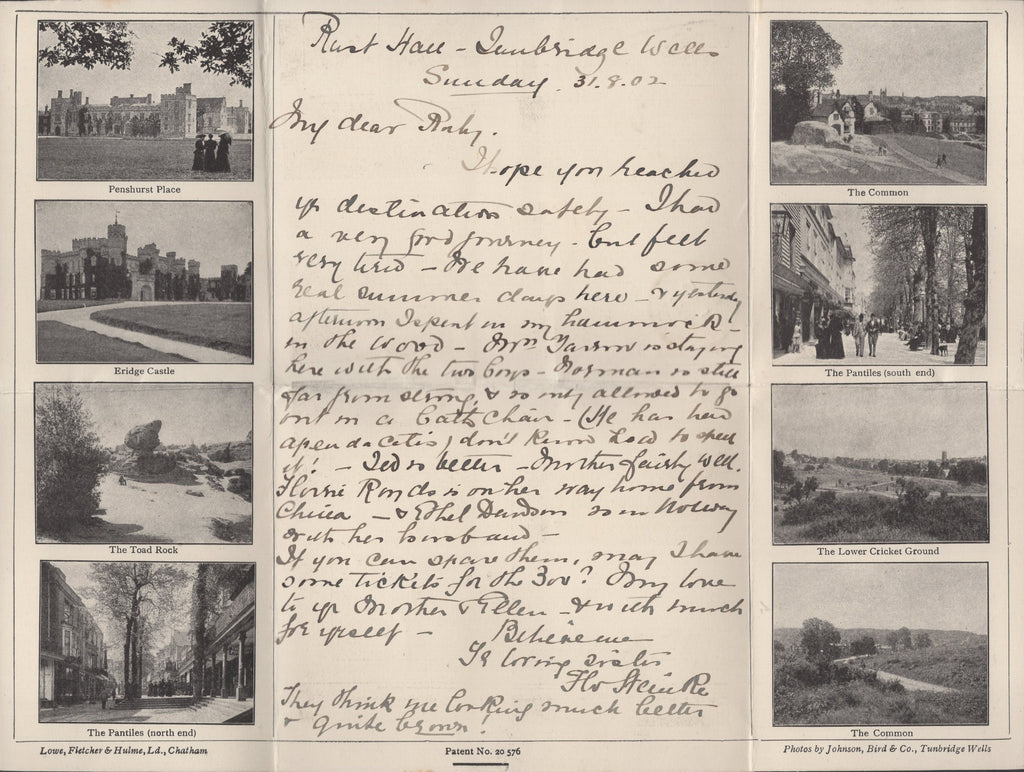 Penshurst Place
Eridge Castle
The Toad Rock
The Pantiles (north end)
Lowe, Fletcher & Hulme, Ld., Chatham
Rust Hall - Tunbridge Wells
Sunday. 31.8.02
My dear
I hope you reached
yr destination safely - I had
a very good journey - but felt
very tired - We have had some
real summer days here - & yesterday
afternoon I spent in my hammock -
in the wood - Mrs is staying
here with the two boys - Norman is still
far from strong, & is only allowed to go
out in a Bath Chair - (He has had
apendacitis) don't know how to spell
it! - Ted is better - Mother fairly well.
Florrie is on her way home from
China - & Ethel is in Norway
with her husband -
If you can spare them, may I have
some tickets for the 30th? My love
to yr Mother & Ellen - & with much
for yrself -
Believe me
Yr loving sister
Flo Steinke
They think me looking much better
& quite brown!
Patent No. 20 576
The Common
The Pantiles (south end)
The Lower Cricket Ground
The Common
Photos by Johnson, Bird & Co., Tunbridge Wells